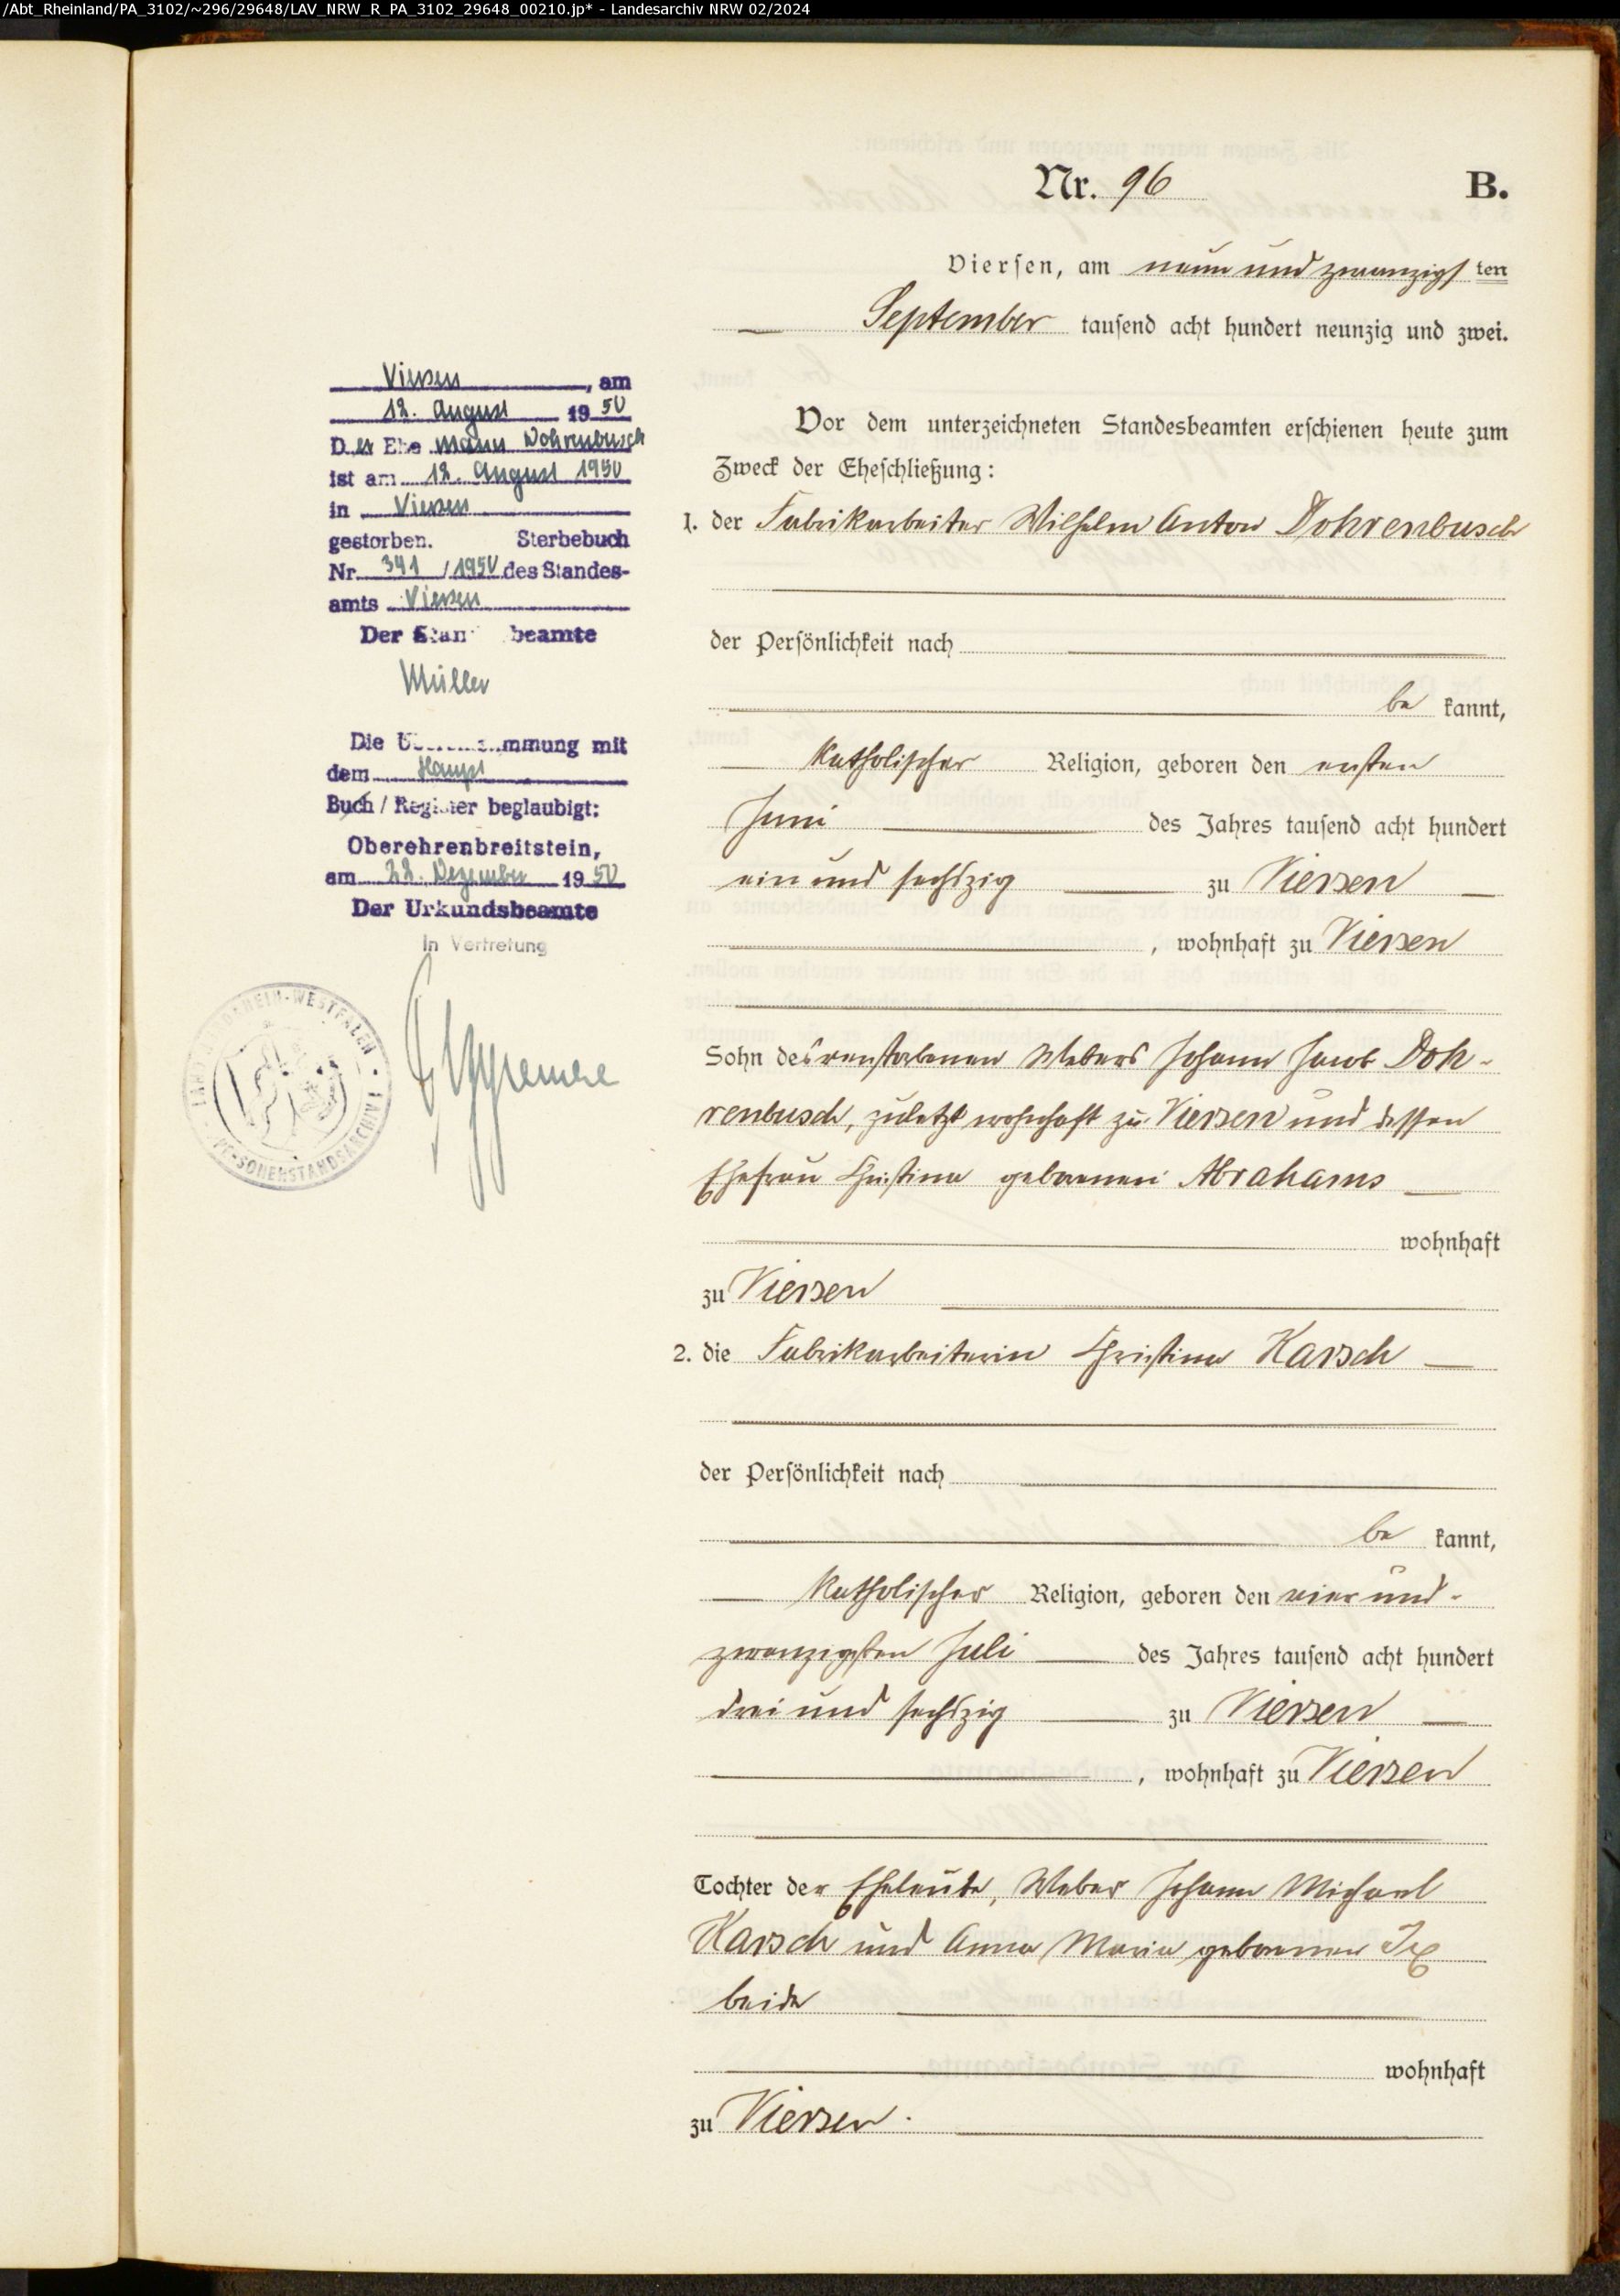 /Abt_Rheinland/PA_3102/~296/29648/LAV_NRW_R_PA_3102_29648_00210.jp* - Landesarchiv NRW 02/2024
Nr. 96
B.
Viersen, am neun und zwanzigsten
September tausend acht hundert neunzig und zwei.
Vor dem unterzeichneten Standesbeamten erschienen heute zum
Zweck der Eheschließung:
1. der Fabrikarbeiter Wilhelm Anton Dohrenbusch
der Persönlichkeit nach
be kannt,
katholischer Religion, geboren den ersten
Juni des Jahres tausend acht hundert
ein und sechszig zu Viersen
, wohnhaft zu Viersen
Sohn des verstorbenen Webers Johann Jacob Doh-
renbusch, zuletzt wohnhaft zu Viersen und dessen
Ehefrau Christina geborenen Abrahams
wohnhaft
zu Viersen
2. die Fabrikarbeiterin Christina Karsch
der Persönlichkeit nach
be kannt,
katholischer Religion, geboren den vier und-
zwanzigsten Juli des Jahres tausend acht hundert
drei und sechszig zu Viersen
, wohnhaft zu Viersen
Tochter der Eheleute, Weber Johann Michael
Karsch und Anna Maria geborenen Ix
beide
wohnhaft
zu Viersen.
Viersen, am
12. August 1950
Der Ehemann Dohrenbusch
ist am 12. August 1950
in Viersen
gestorben. Sterbebuch
Nr. 341 / 1950 des Standes-
amts Viersen
Der Stan beamte
Müller
Die mmung mit
dem Haupt
Buch / Register beglaubigt:
Oberehrenbreitstein,
am 22. Dezember 1950
Der Urkundsbeamte
In Vertretung